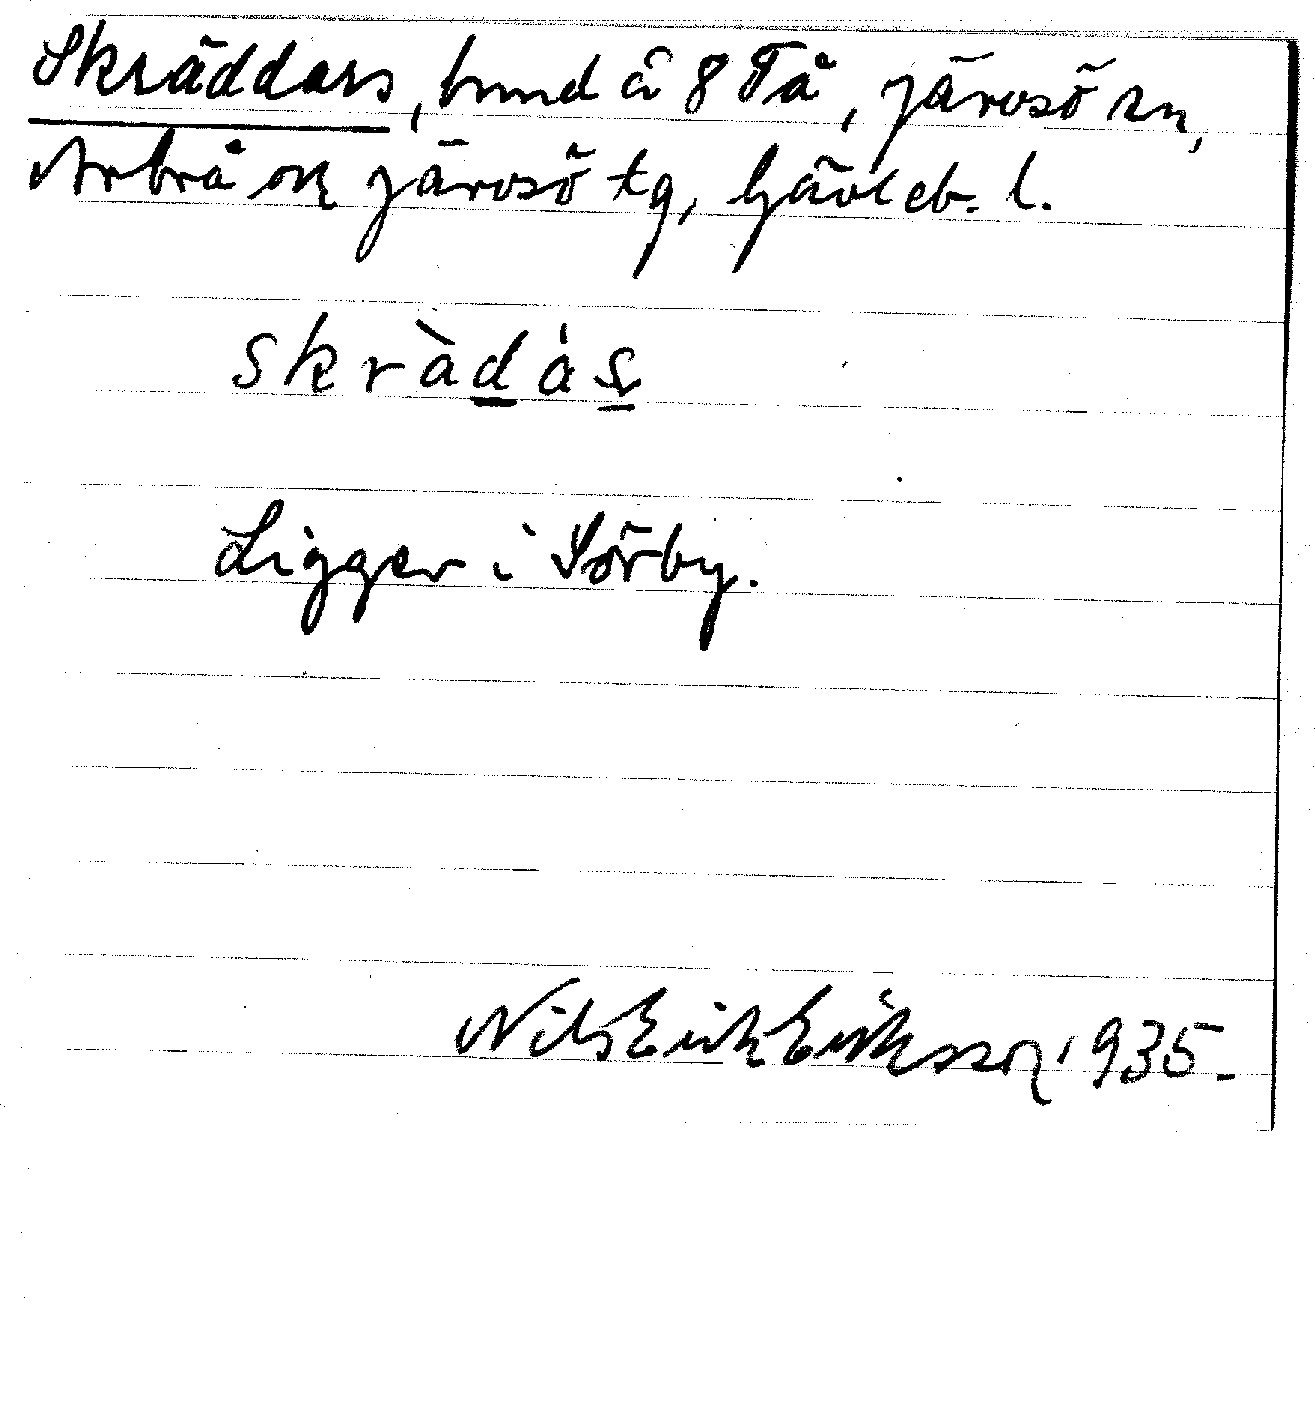 Skräddars, hmd å 8 Tå, Järvsö sn,
Arbrå ok Järvsö tg, Gävleb. l.
skràdás
Ligger i Sörby.
Nils Erik Eriksson 1935.